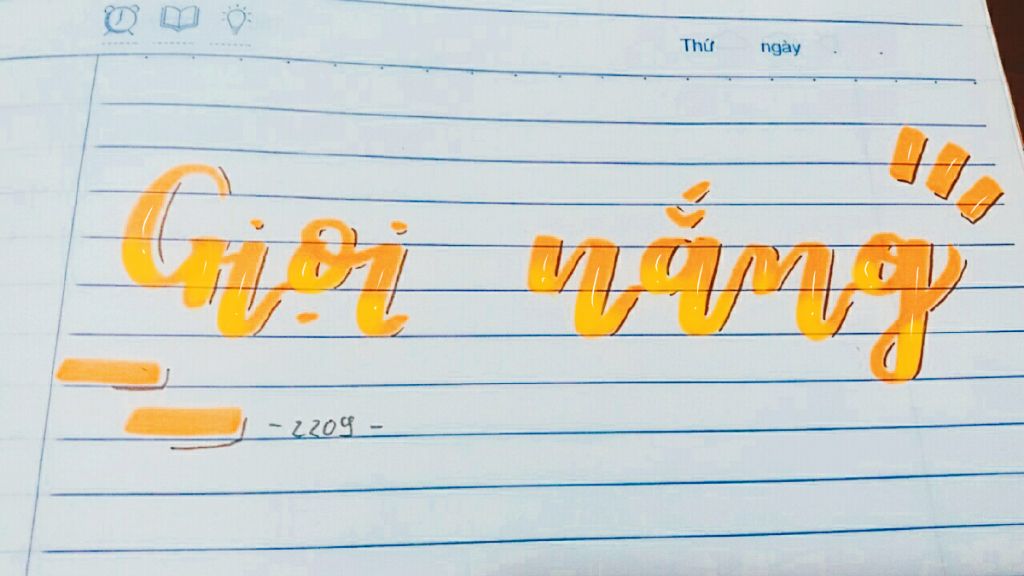 Thứ ngày
Giọi nắng
- 2209 -